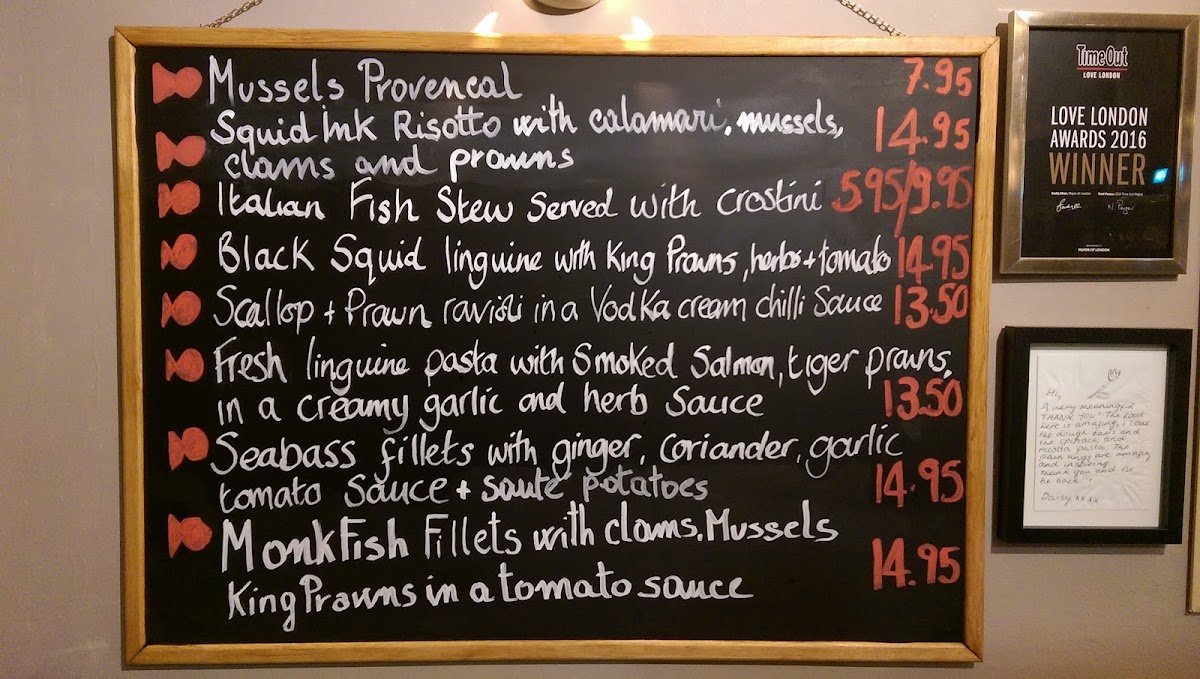 Mussels Provencal 7.95
Squid Ink Risotto with calamari, mussels,
clams and prawns 14.95
Italian Fish Stew Served with Crostini 5.95/9.95
Black Squid linguine with King Prawns, herbs + tomato 14.95
Scallop + Prawn ravioli in a Vodka cream chilli Sauce 13.50
Fresh linguine pasta with Smoked Salmon, tiger prawns,
in a creamy garlic and herb Sauce 13.50
Seabass fillets with ginger, coriander, garlic
tomato Sauce + sauté potatoes 14.95
MonkFish Fillets with clams. Mussels
King Prawns in a tomato sauce 14.95
TimeOut
LOVE LONDON
LOVE LONDON
AWARDS 2016
WINNER
MAYOR OF LONDON
Hi,
A very meaningful
THANK YOU! The food
here is amazing, i love
the dough balls and
the spinach and
ricotta pasta. The
are amazing
and inspiring.
Thank you and i'll
be back!!!
Daisy xxxx